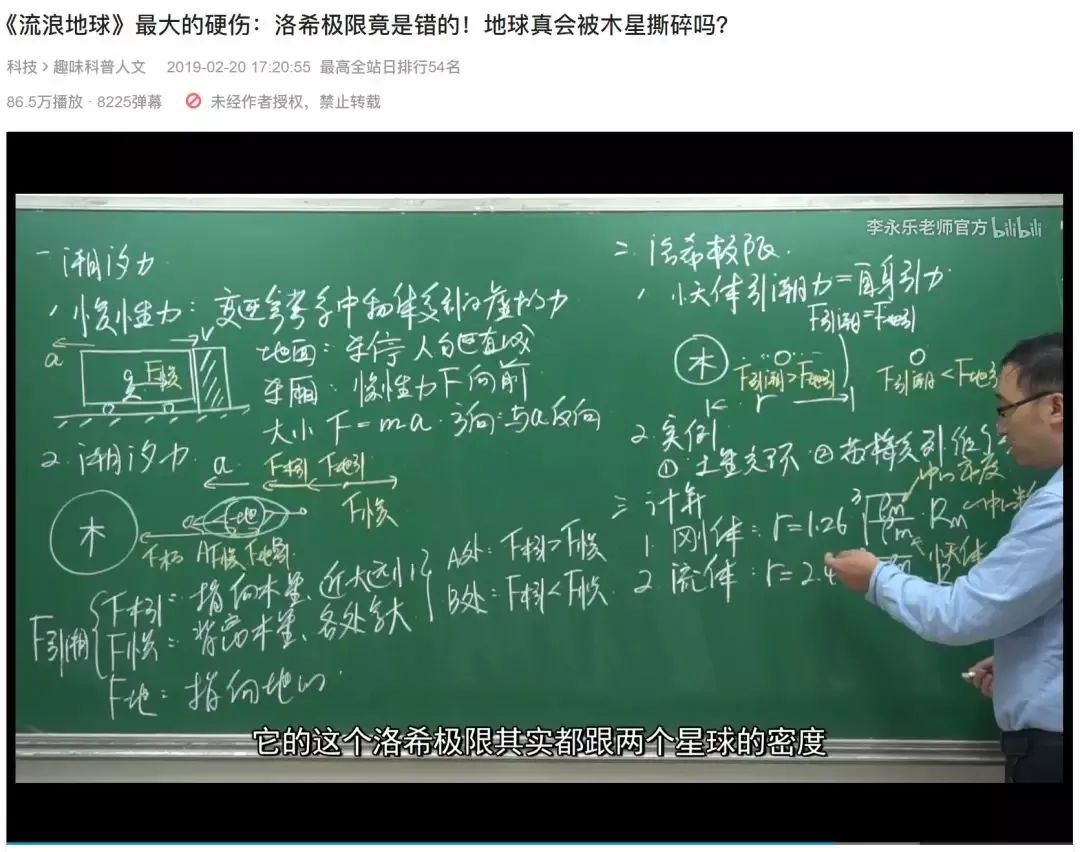 《流浪地球》最大的硬伤：洛希极限竟是错的！地球真会被木星撕碎吗？
科技 > 趣味科普人文 2019-02-20 17:20:55 最高全站日排行54名
86.5万播放 · 8225弹幕 未经作者授权，禁止转载
李永乐老师官方 bilibili
一 潮汐力
1 惯性力：变速参考系中物体受到的虚拟力
a V
F惯
地面：车停 人匀速直线
车厢：惯性力F向前
大小 F=ma 方向：与a反向
2. 潮汐力
a
F木引 F地引
F惯
木
地
F引潮
F木引：指向木星、近大远小
F惯：背离木星、各处等大
F地：指向地心
A处：F木引>F惯
B处：F木引<F惯
二 洛希极限
1 小天体引潮力=自身引力
F引潮=F地引
木
F引潮>F地引
F引潮<F地引
r
2. 实例
① 土星光环 ②
三 计算
1. 刚体：r=1.26 ∛ρM/ρm · RM
2. 流体：r=2.4
小天体
它的这个洛希极限其实都跟两个星球的密度